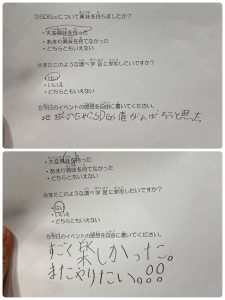 ③SDGsについて興味を持ちましたか?
・大変興味を持った
・あまり興味を持てなかった
・どちらともいえない
④またこのような調べ学習に参加したいですか?
・はい
・いいえ
・どちらともいえない
⑤今日のイベントの感想を自由に書いてください。
地球のためにSDGs
がんばろうと思った
・大変興味を持った
・あまり興味を持てなかった
・どちらともいえない
④またこのような調べ学習に参加したいですか?
・はい
・いいえ
・どちらともいえない
⑤今日のイベントの感想を自由に書いてください。
すごく楽しかった。
またやりたい。